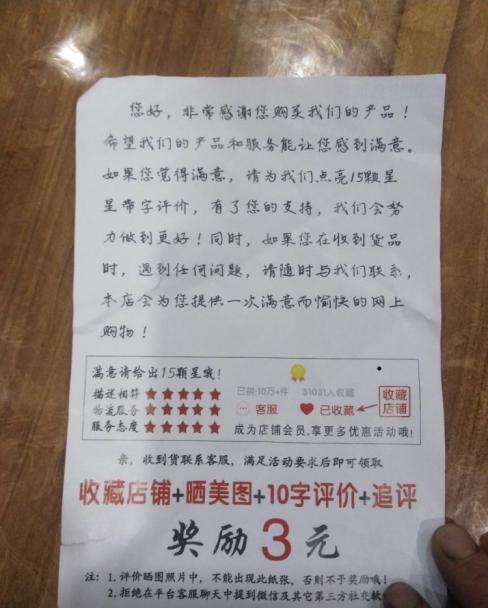 您好，非常感谢您购买我们的产品！
希望我们的产品和服务能让您感到满意。
如果您觉得满意，请为我们点亮15颗星
星带字评价，有了您的支持，我们会努
力做到更好！同时，如果您在收到货品
时，遇到任何问题，请随时与我们联系，
本店会为您提供一次满意而愉快的网上
购物！
满意请给出15颗星哦！
描述相符 ★★★★★ 已拼:10万+件 31031人收藏
物流服务 ★★★★★ 客服 已收藏 收藏店铺
服务态度 ★★★★★ 成为店铺会员,享更多优惠活动哦!
亲，收到货联系客服，满足活动要求后即可领取
收藏店铺+晒美图+10字评价+追评
奖励3元
注：1. 评价晒图照片中，不能出现此纸张，否则不予奖励哦！
2. 拒绝在平台客服聊天中提到微信及其它第三方社交软